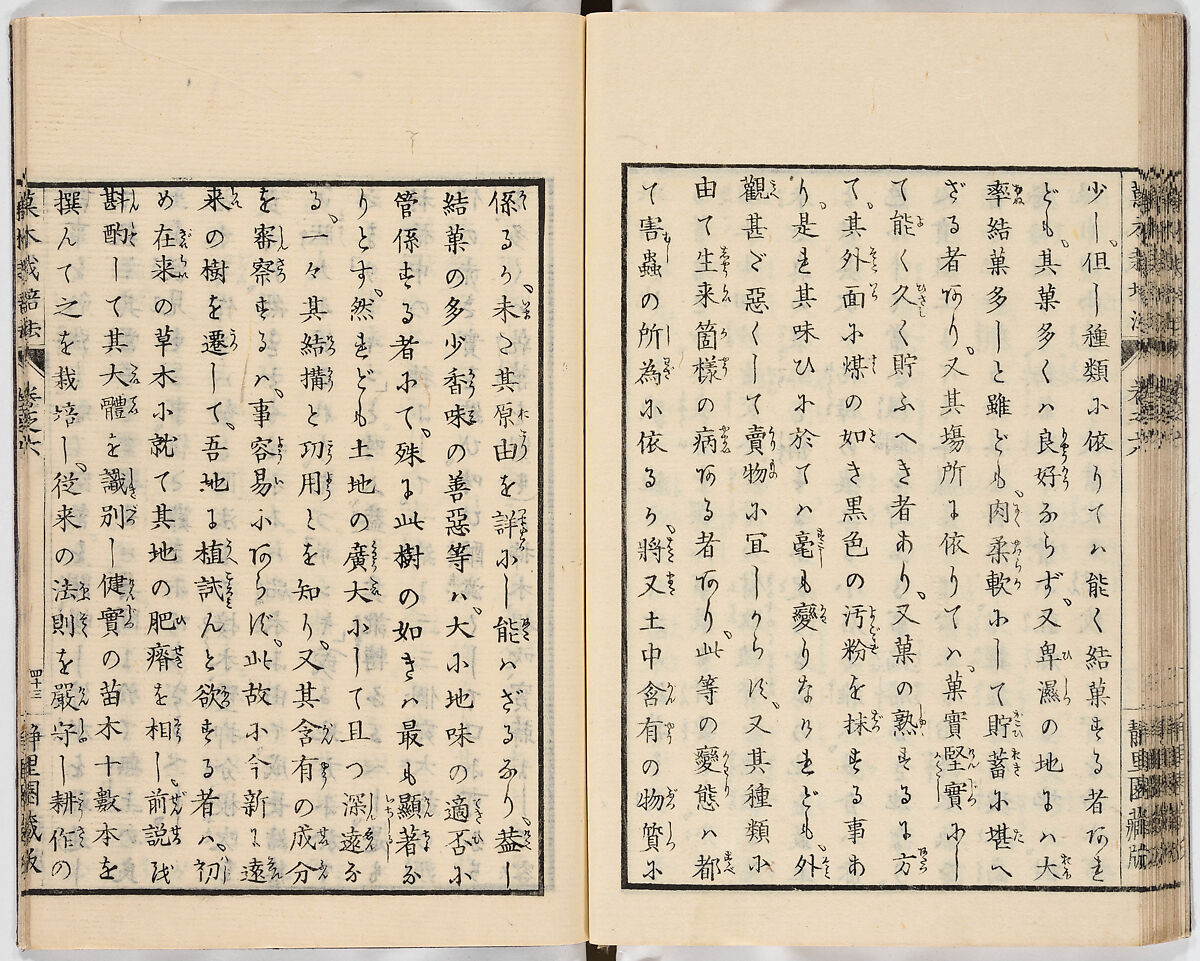 少し、但し種類に依りてハ能く結菓する者あれ
ども、其菓多くハ良好ならず、又卑濕の地にハ大
率結菓多しと雖ども、肉柔軟にして貯蓄に堪へ
ざる者あり、又其塲所に依りてハ、菓實堅實にし
て能く久く貯ふへき者あり、又菓の熟するに方
て、其外面に煤の如き黒色の汚粉を抹する事あ
り、是れ其味ひに於てハ毫も變りなけれども、外
觀甚ご惡くして賣物に宜しからず、又其種類に
由て生来箇様の病ある者あり、此等の變態ハ都
て害蟲の所為に依るか、將又土中含有の物質に
係るか未だ其原由を詳にし能ハざるなり、葢し
結菓の多少香味の善惡等ハ、大に地味の適否に
管係する者にて、殊に此樹の如きハ最も顯著な
りとす、然れども土地の廣大にして且つ深遠な
る、一々其結搆と功用とを知り、又其含有の成分
を審察するハ、事容易にあらず、此故に今新に遠
来の樹を遷して、吾地に植試んと欲する者ハ、初
め在来の草木に就て其地の肥瘠を相し、前説を
斟酌して其大體を識別し健實の苗木十數本を
撰んて之を栽培し、従来の法則を嚴守し耕作の
菓木栽培法
巻之六
四十三
靜里園藏版